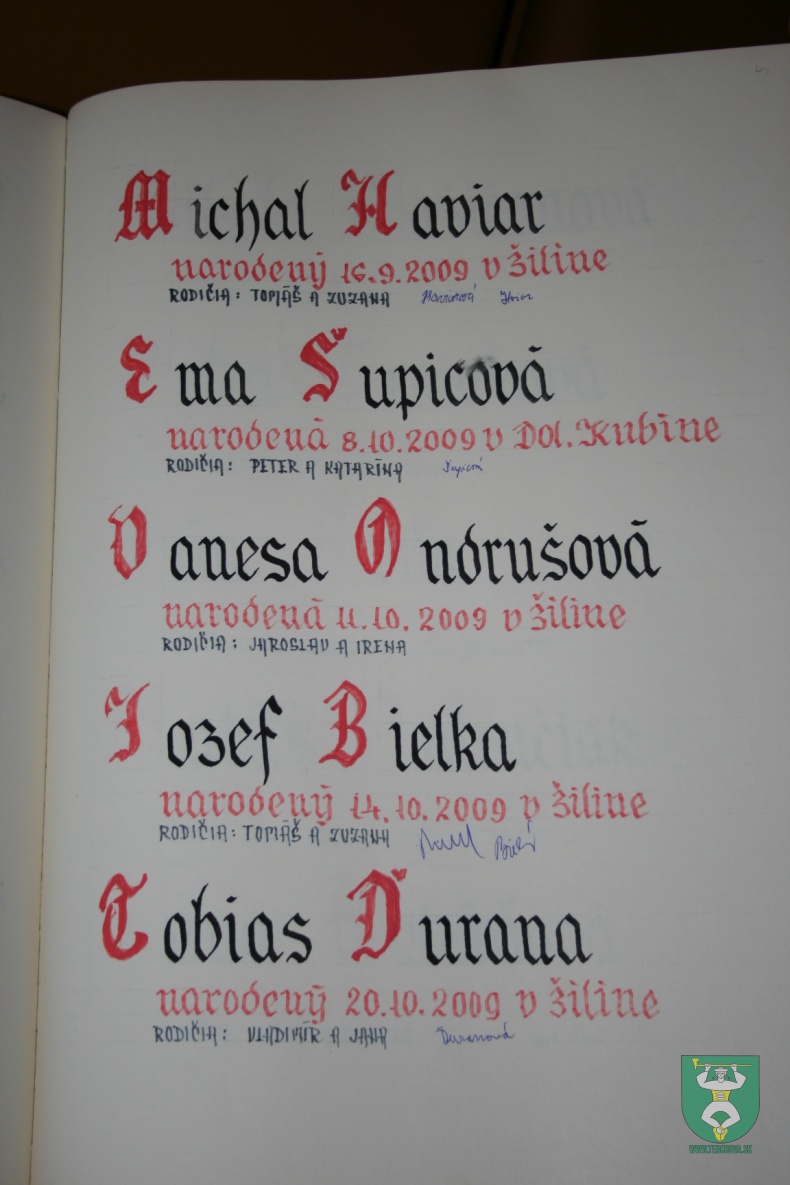 Michal Haviar
narodený 16.9.2009 v Žiline
RODIČIA: TOMÁŠ A ZUZANA Haviarová
Ema Šupicová
narodená 8.10.2009 v Dol. Kubíne
RODIČIA: PETER A KATARÍNA Šupicová
Vanesa Ondrušová
narodená 11.10.2009 v Žiline
RODIČIA: JAROSLAV A IRENA
Jozef Bielka
narodený 14.10.2009 v Žiline
RODIČIA: TOMÁŠ A ZUZANA
Tobias Ďurana
narodený 20.10.2009 v Žiline
RODIČIA: VLADIMÍR A JANA Ďuranová
WWW.TERCHOVA.SK